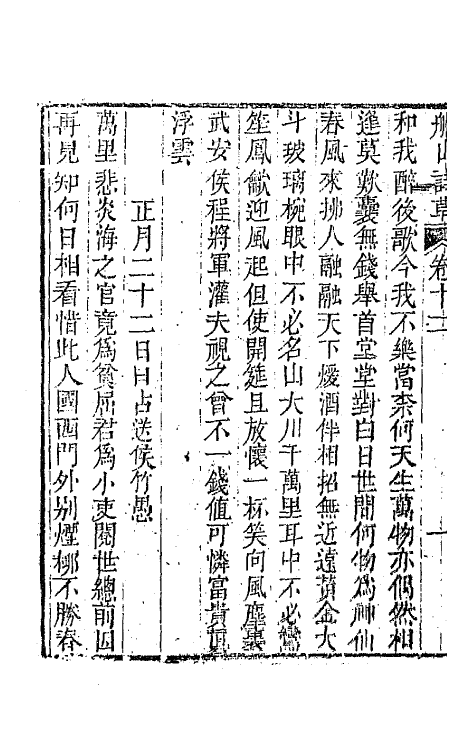 船山詩草 卷十二 一
和我醉後歌今我不樂當柰何天生萬物亦偶然相
逢莫歎囊無錢舉首堂堂對白日世間何物爲神仙
春風來拂人融融天下煖酒伴相招無近遠黃金大
斗玻璃椀眼中不必名山大川千萬里耳中不必鸞
笙鳳龡迎風起但使開筵且放懷一杯笑向風塵裏
武安侯程將軍灌夫視之曾不一錢值可憐富貴真
浮雲
正月二十二日口占送侯竹愚
萬里悲炎海之官竟爲貧屈君爲小吏閱世總前因
再見知何日相看惜此人國西門外别煙栁不勝春